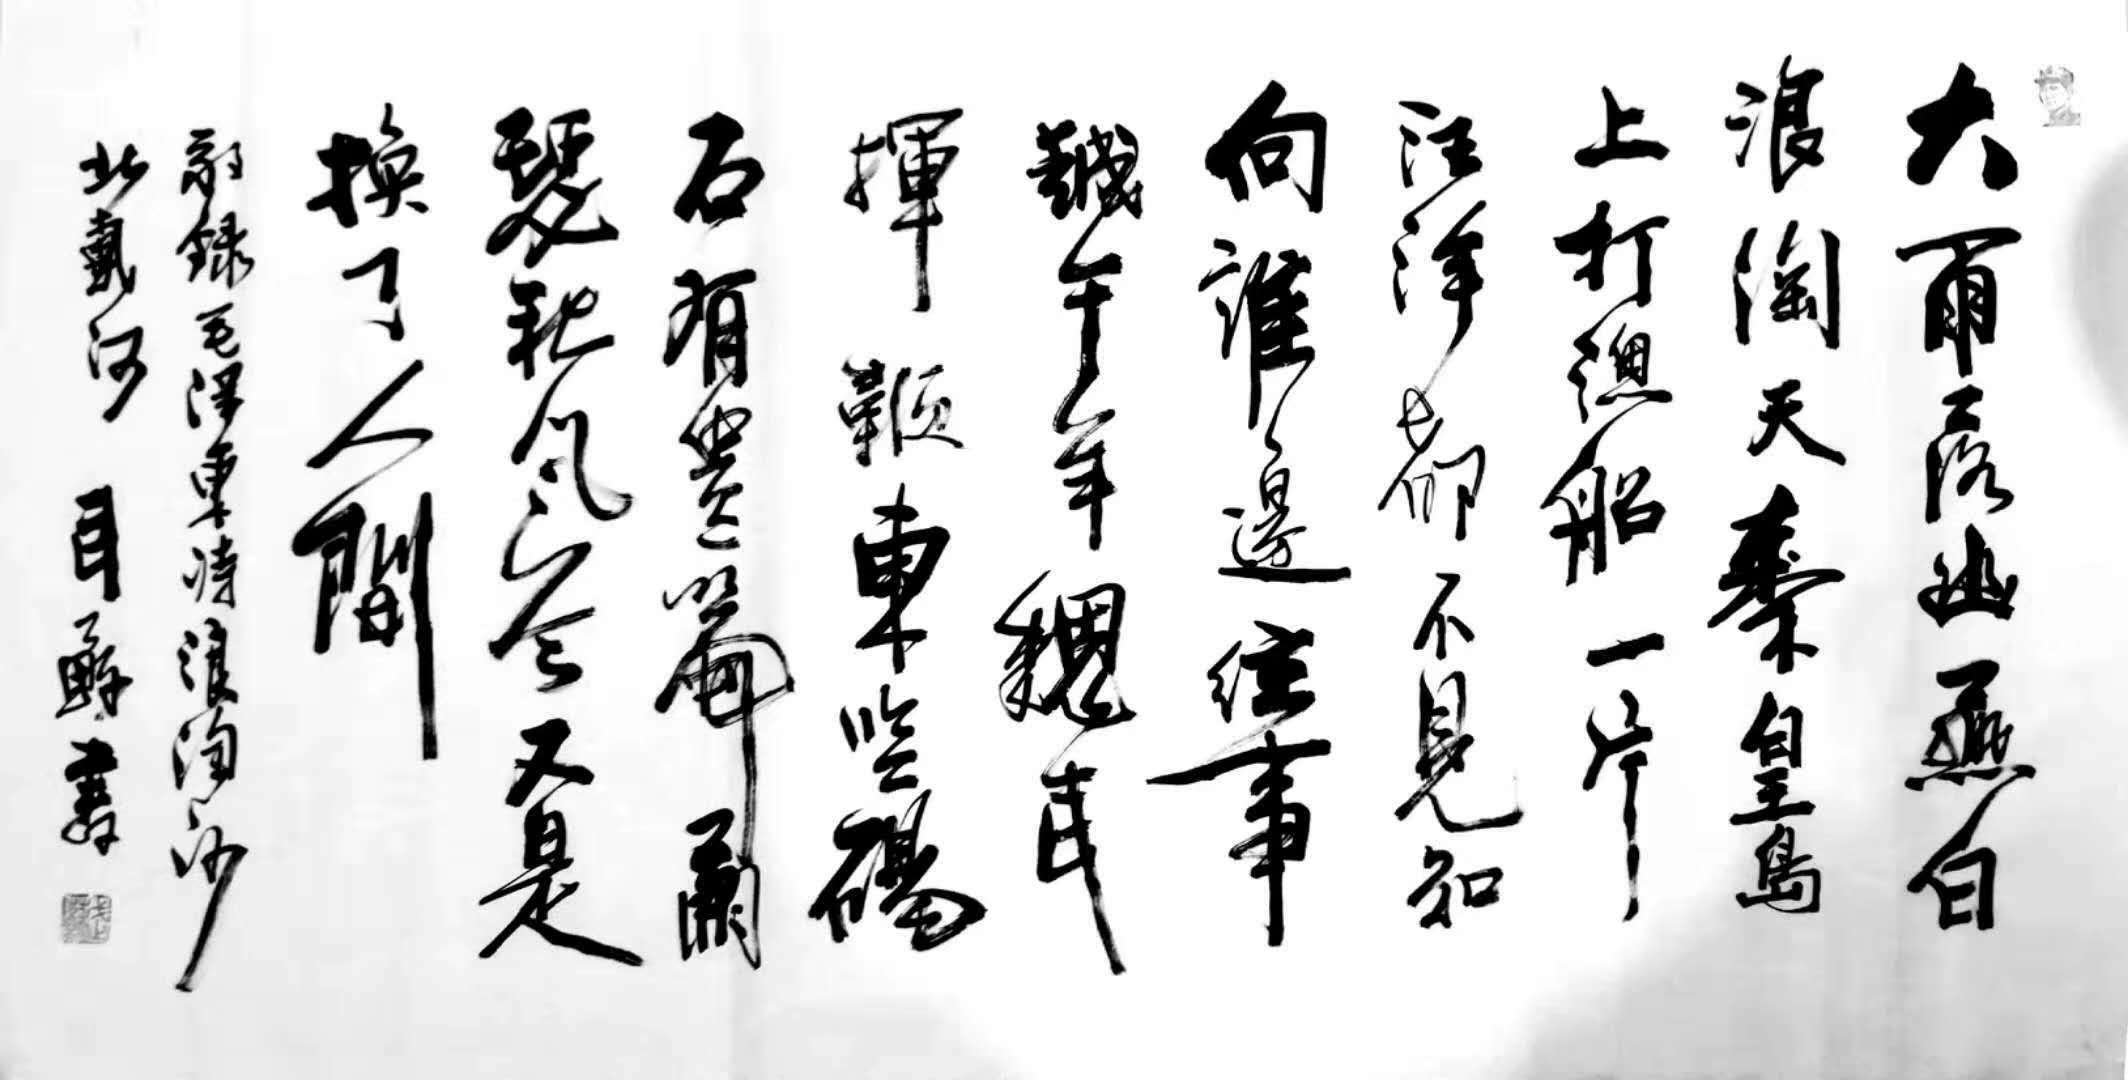 大雨落幽燕白
浪淘天秦皇島
上打漁船一片
汪洋都不見知
向誰邊往事
越千年魏武
揮鞭東臨碣
石有遺篇蕭
瑟秋風今又是
換了人間
敬録毛澤東詩浪淘沙
北戴河 書